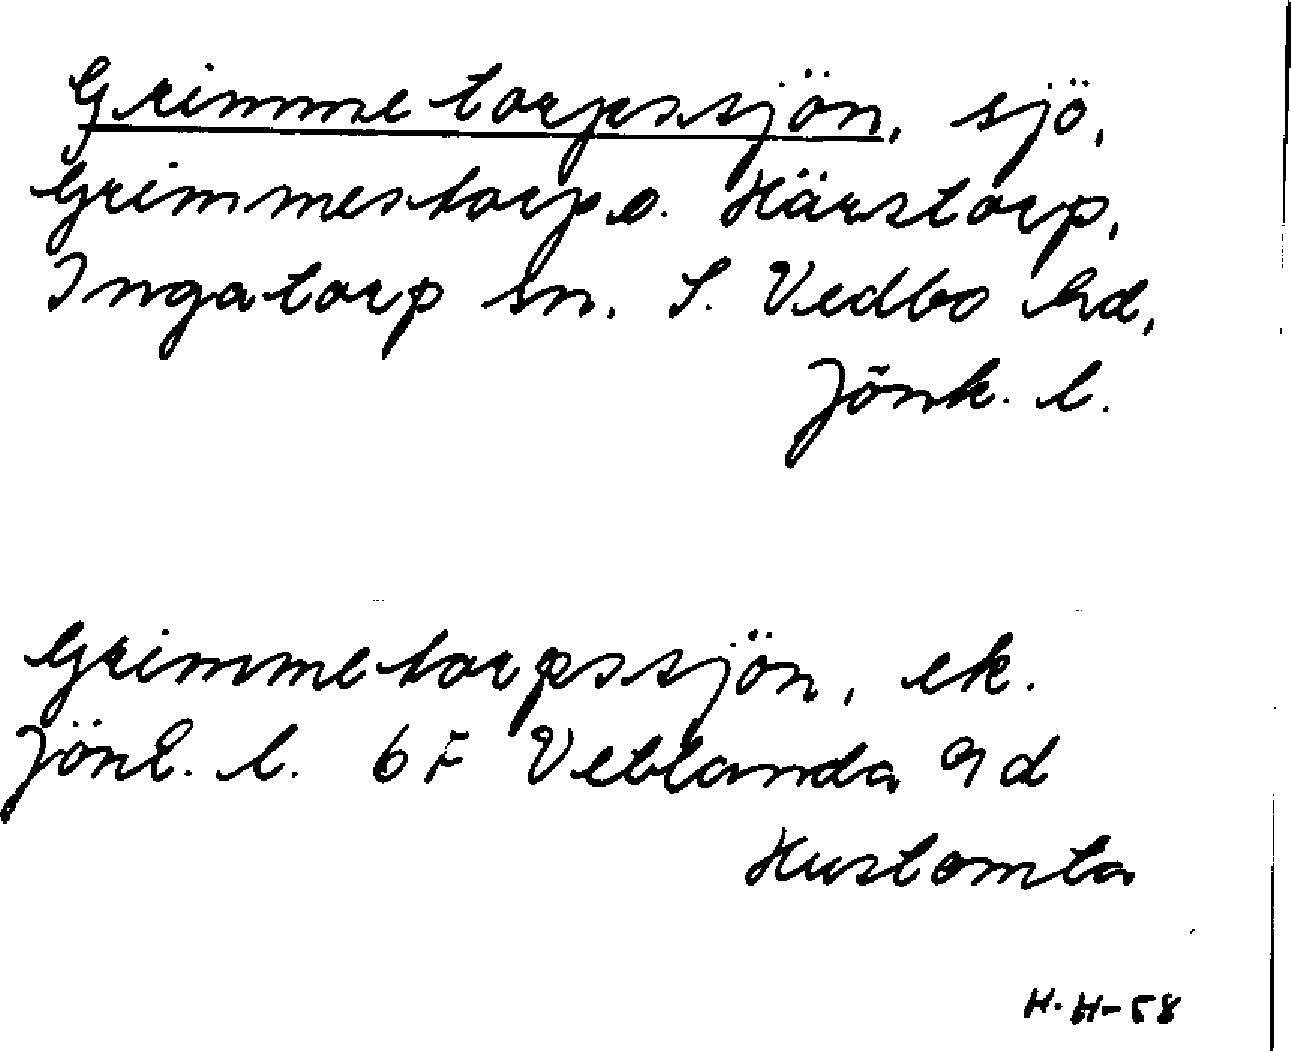 Grimmetorpssjön, sjö,
Grimmestorp o. Härstorp,
Ingatorp sn. S. Vedbo hd,
Jönk. l.
Grimmetorpssjön, ek.
Jönk. l. 6 F Vetlanda 9 d
Hustomta
H. H-58